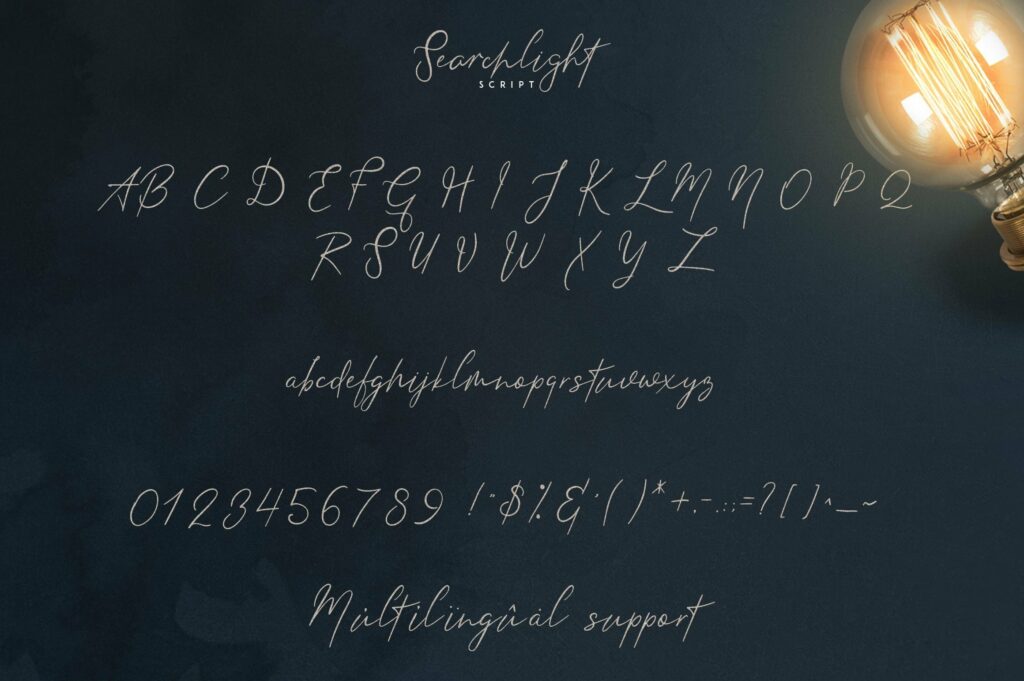 Searchlight
SCRIPT
A B C D E F G H I J K L M N O P Q
R S U V W X Y Z
abcdefghijklmnopqrstuvwxyz
0123456789 ! " $ % & ' ( ) * + , - . : ; = ? [ ] ^ _ ~
Múltilïngûál support